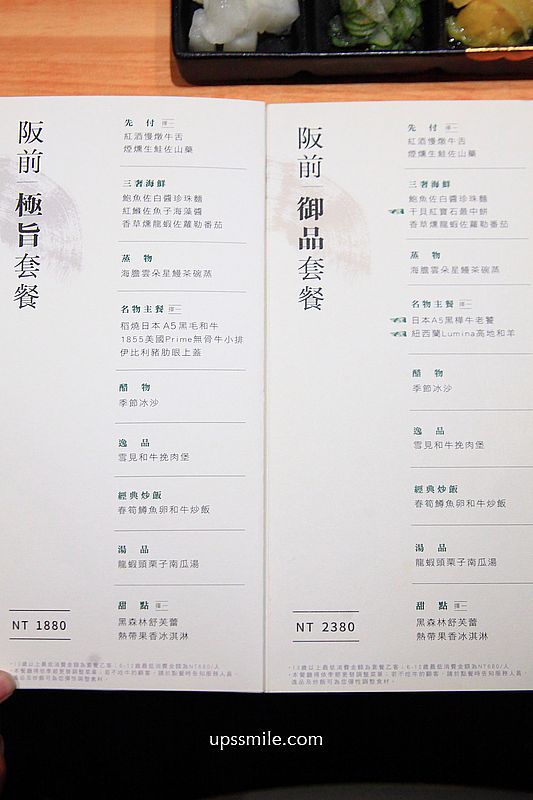 阪前 極旨套餐
先付 擇一
紅酒慢燉牛舌
煙燻生鮭佐山藥
三奢海鮮
鮑魚佐白醬珍珠麵
紅魽佐魚子海藻醬
香草燻龍蝦佐蘿勒番茄
蒸物
海膽雲朵星鰻茶碗蒸
名物主餐 擇一
稻燒日本A5黑毛和牛
1855美國Prime無骨牛小排
伊比利豬肋眼上蓋
醋物
季節冰沙
逸品
雪見和牛挽肉堡
經典炒飯
春筍鱒魚卵和牛炒飯
湯品
龍蝦頭栗子南瓜湯
甜點 擇一
黑森林舒芙蕾
熱帶果香冰淇淋
NT 1880
阪前 御品套餐
先付 擇一
紅酒慢燉牛舌
煙燻生鮭佐山藥
三奢海鮮
鮑魚佐白醬珍珠麵
干貝紅寶石最中餅
香草燻龍蝦佐蘿勒番茄
蒸物
海膽雲朵星鰻茶碗蒸
名物主餐 擇一
日本A5黑樺牛老饕
紐西蘭Lumina高地和羊
醋物
季節冰沙
逸品
雪見和牛挽肉堡
經典炒飯
春筍鱒魚卵和牛炒飯
湯品
龍蝦頭栗子南瓜湯
甜點 擇一
黑森林舒芙蕾
熱帶果香冰淇淋
NT 2380
upssmile.com